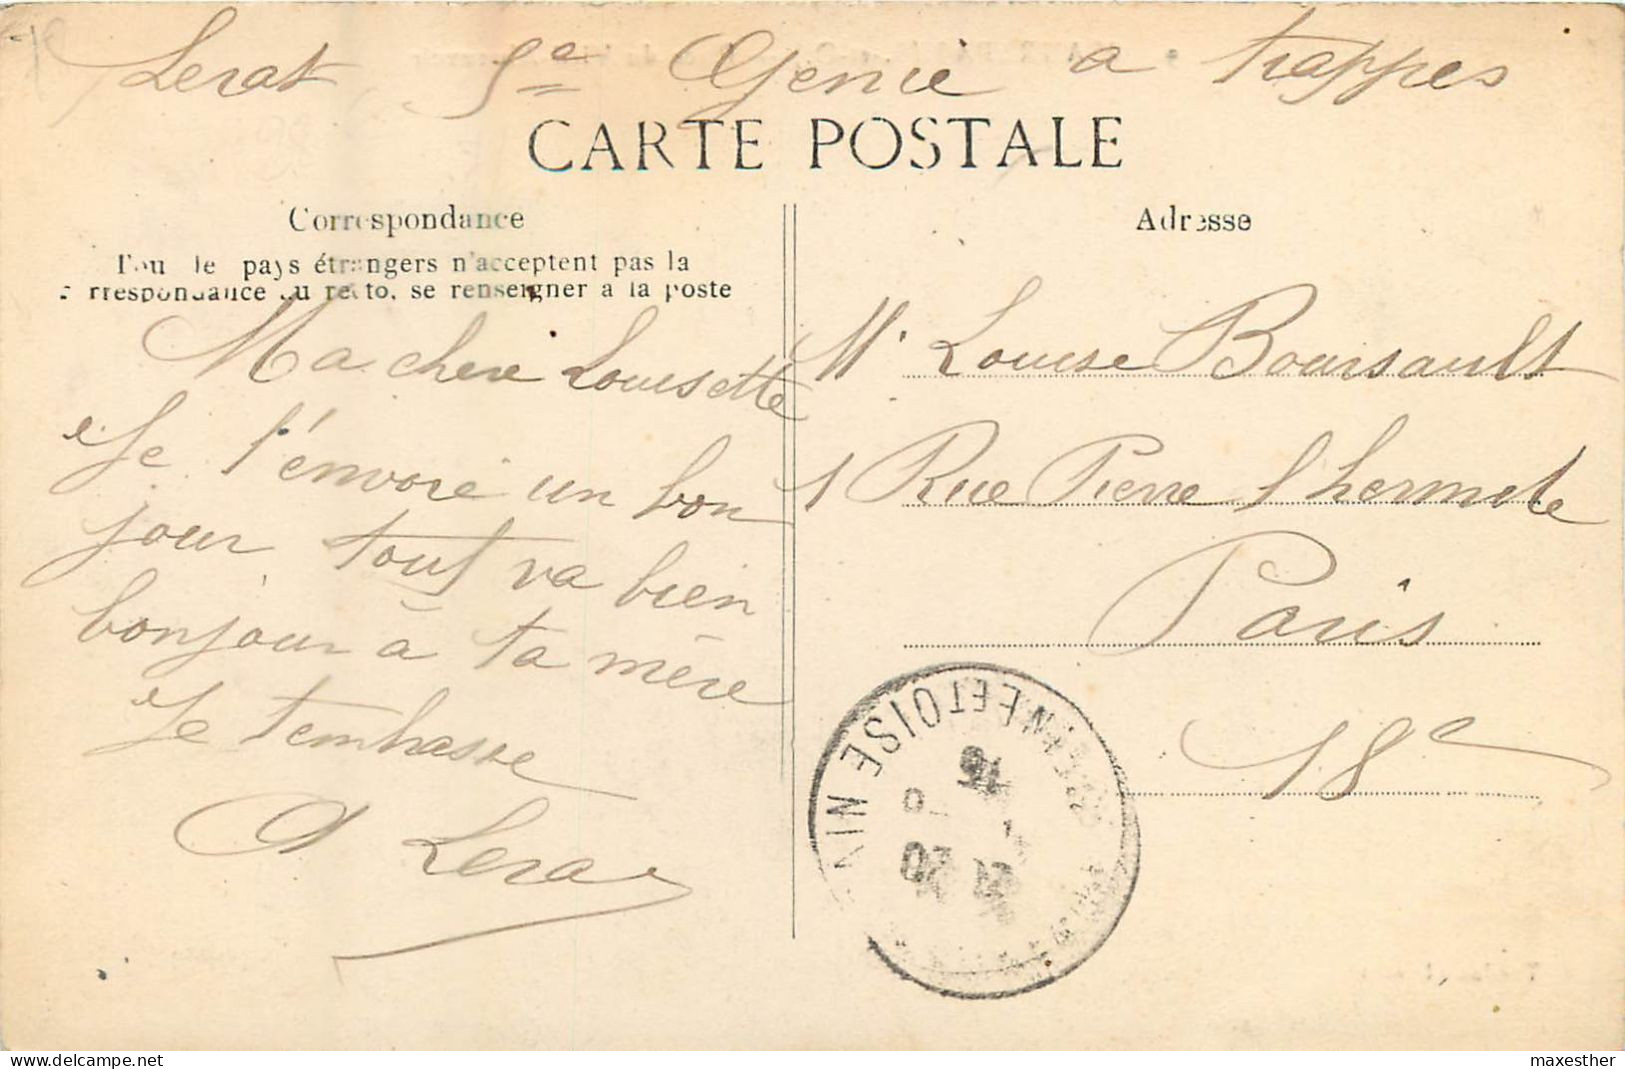 Lerat 5e Genie a trappes
CARTE POSTALE
Correspondance
Tou le pays étrangers n'acceptent pas la
rrespondance au recto, se renseigner a la poste
Ma chere Louisette
Je t'envoie un bon
jour tout va bien
bonjour à ta mère
Je t'embasse
A Lerat
Adresse
Ml Louise Boursault
1 Rue Pierre l hermite
Paris
18e
SEINE ET OISE
maxesther